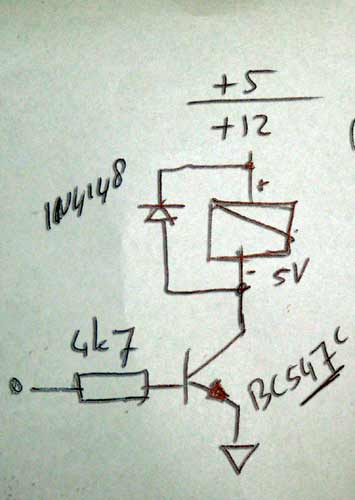 +5
+12
1N4148
+
-
5V
4k7
BC547C